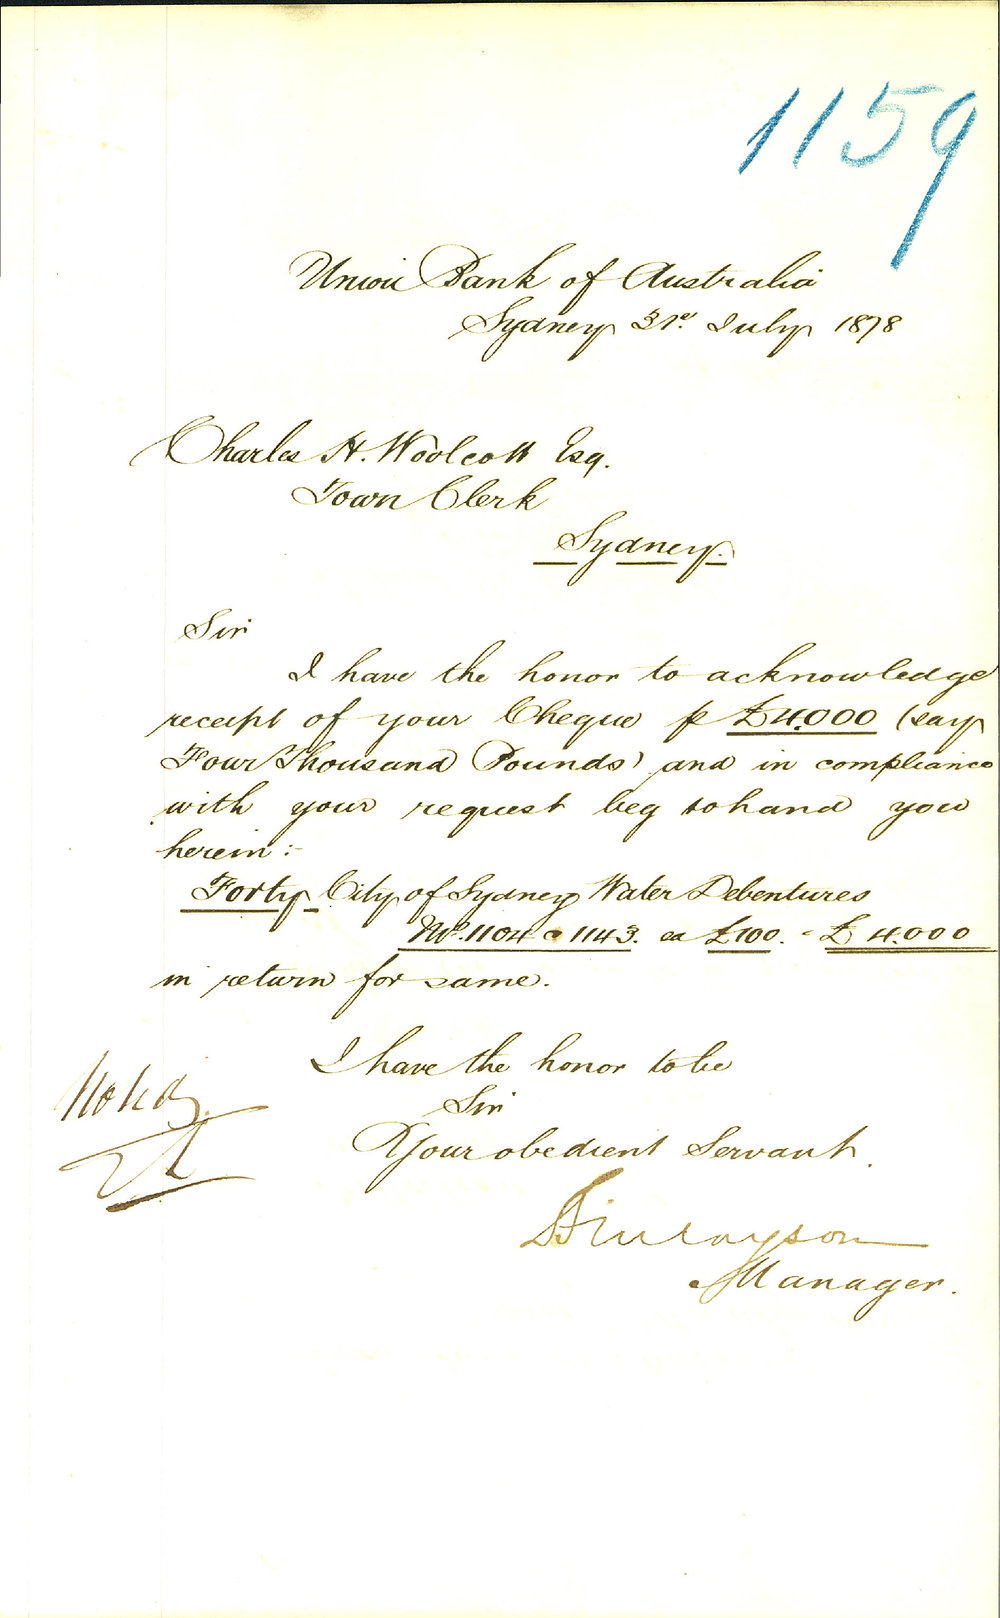 1159
Union Bank of Australia
Sydney 31st July 1878
Charles H. Woolcott Esq.
Town Clerk
Sydney.
Sir
I have the honor to acknowledge
receipt of your Cheque p £4.000 (say
Four Thousand Pounds) and in compliance
with your request beg to hand you
herein:-
Forty City of Sydney Water Debentures
No. 1104 @ 1143. ea £100. - £4.000
in return for same.
I have the honor to be
Sir
Your obedient Servant.
Noted
Finlayson
Manager.